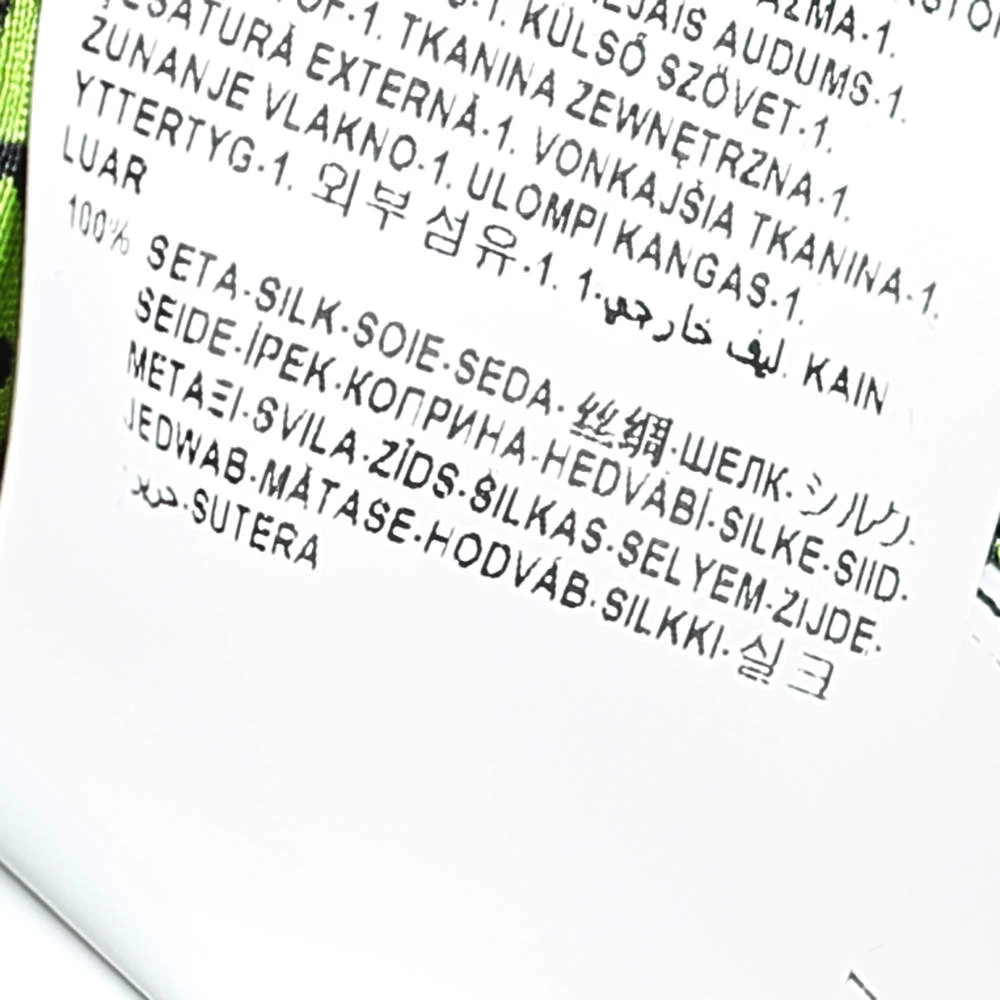 AUDUMS·1.
OF·1. TKANINA ZEWNĘTRZNA·1.
KÜLSŐ SZÖVET·1.
ŢESĂTURĂ EXTERNĂ·1. VONKAJŠIA TKANINA·1.
ZUNANJE VLAKNO·1. ULOMPI KANGAS·1.
YTTERTYG·1. 외부 섬유·1. 1·ليف خارجي. KAIN
LUAR
100% SETA·SILK·SOIE·SEDA·丝绸·ШЕЛК·シルク·
SEIDE·İPEK·КОПРИНА·HEDVÁBÍ·SILKE·SIID·
ΜΕΤΑΞΙ·SVILA·ZĪDS·ŠILKAS·SELYEM·ZIJDE·
JEDWAB·MĂTASE·HODVÁB·SILKKI·실크
حرير·SUTERA